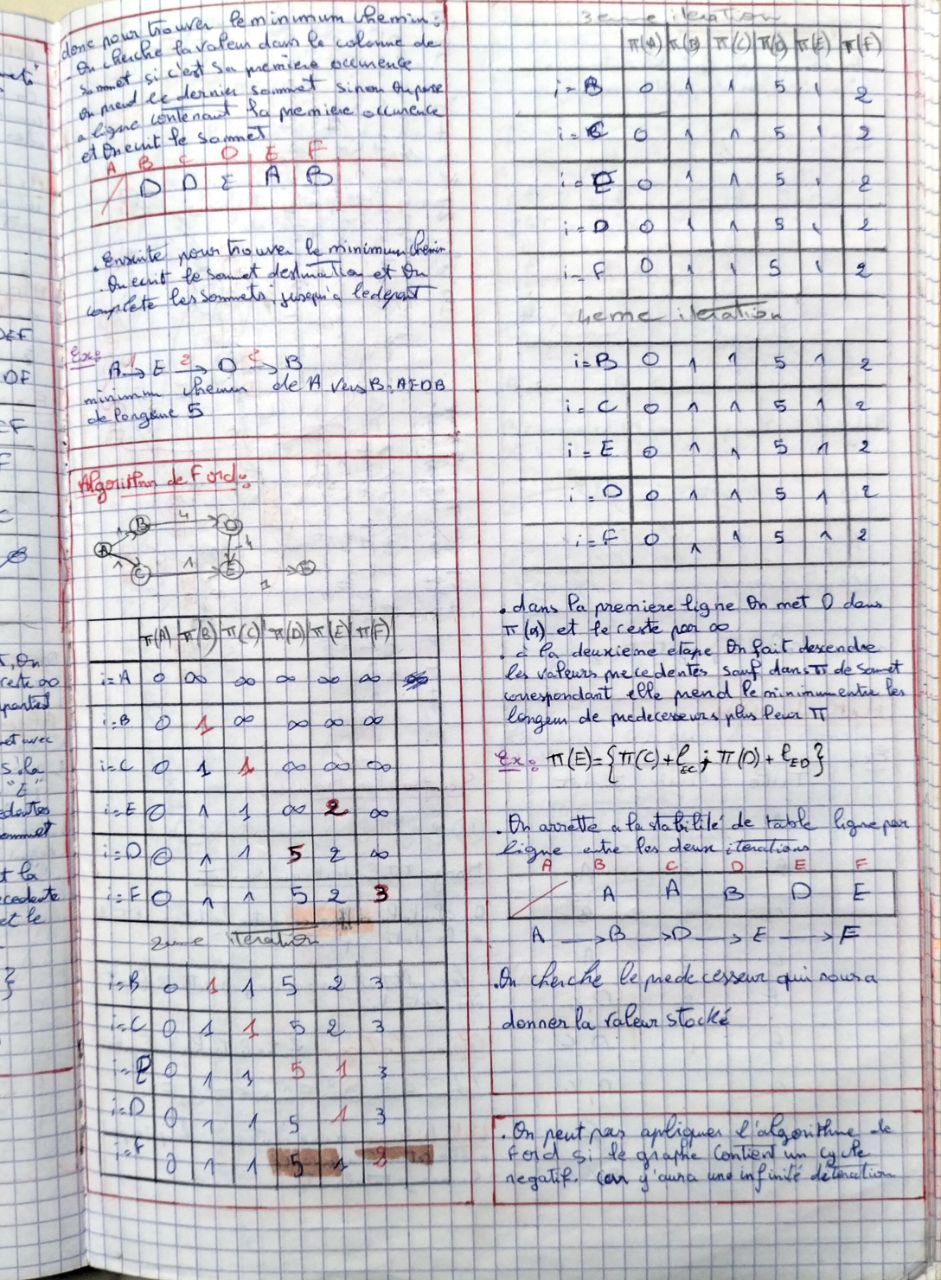 donc pour trouver le minimum chemin :
On cherche la valeur dans la colonne de
sommet si c'est sa premiere occurence
on prend le dernier sommet sinon On passe
a ligne contenant sa premiere occurence
et On ecrit le sommet
A B C D E F
D D E A B
. Ensuite pour trouver le minimum chemin
. On ecrit le somet destination et On
complete les sommets jusqu'a le depart
Ex:
A → E 2→ D 2→ B
minimum chemin de A vers B : AEDB
de longeur 5
Algorithm de Ford :
A B C D E
1 4 1 1 4 1
π(A) π(B) π(C) π(D) π(E) π(F)
i=A 0 ∞ ∞ ∞ ∞ ∞
i=B 0 1 ∞ ∞ ∞ ∞
i=C 0 1 1 ∞ ∞ ∞
i=E 0 1 1 ∞ 2 ∞
i=D 0 1 1 5 2 ∞
i=F 0 1 1 5 2 3
2eme iteration
i=B 0 1 1 5 2 3
i=C 0 1 1 5 2 3
i=E 0 1 1 5 1 3
i=D 0 1 1 5 1 3
i=F 0 1 1 5 1 2
3eme iteration
π(A) π(B) π(C) π(D) π(E) π(F)
i=B 0 1 1 5 1 2
i=C 0 1 1 5 1 2
i=E 0 1 1 5 1 2
i=D 0 1 1 5 1 2
i=F 0 1 1 5 1 2
4eme iteration
i=B 0 1 1 5 1 2
i=C 0 1 1 5 1 2
i=E 0 1 1 5 1 2
i=D 0 1 1 5 1 2
i=F 0 1 1 5 1 2
. dans la premiere ligne On met 0 dans
π(a) et le reste par ∞
. à la deuxieme etape On fait descendre
les valeurs precedentes sauf dans π de somet
correspondant elle prend le minimum entre les
longeur de predecesseurs plus leur π
Ex : π(E)={π(C)+l EC ; π(D)+l ED}
. On arrette a la stabilité de table ligne par
ligne entre les deux iterations
A B C D E F
A A B D E
A → B → D → E → F
. On cherche le predecesseur qui nous a
donner la valeur stocké
. On peut pas apliquer l'algorithme de
ford si le graphe contient un cycle
negatif. car y'aura une infinité d'iteration